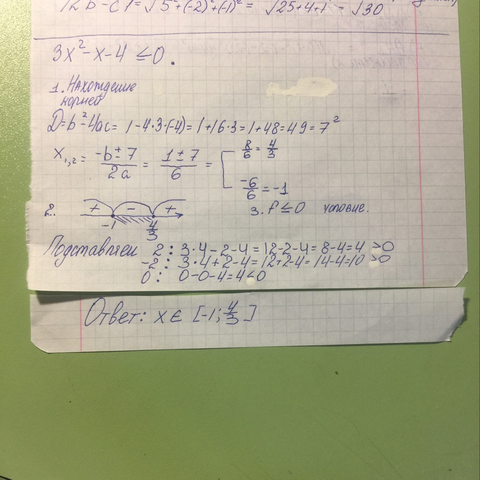 |2b-c|=√5²+(-2)²+(-1)² = √25+4+1 = √30
3x²-x-4 ≤0.
1. Нахождение
корней
D=b²-4ac= 1-4·3·(-4)=1+16·3=1+48=49=7²
x₁,₂ = -b±7/2a = 1±7/6 = [8/6=4/3
-6/6=-1
2. + - +
-1 4/3
3. f≤0 условие.
Подставляем 2: 3·4-2-4=12-2-4=8-4=4 >0
-2: 3·4+2-4=12+2-4=14-4=10 >0
0: 0-0-4=4<0
Ответ: x∈ [-1; 4/3]